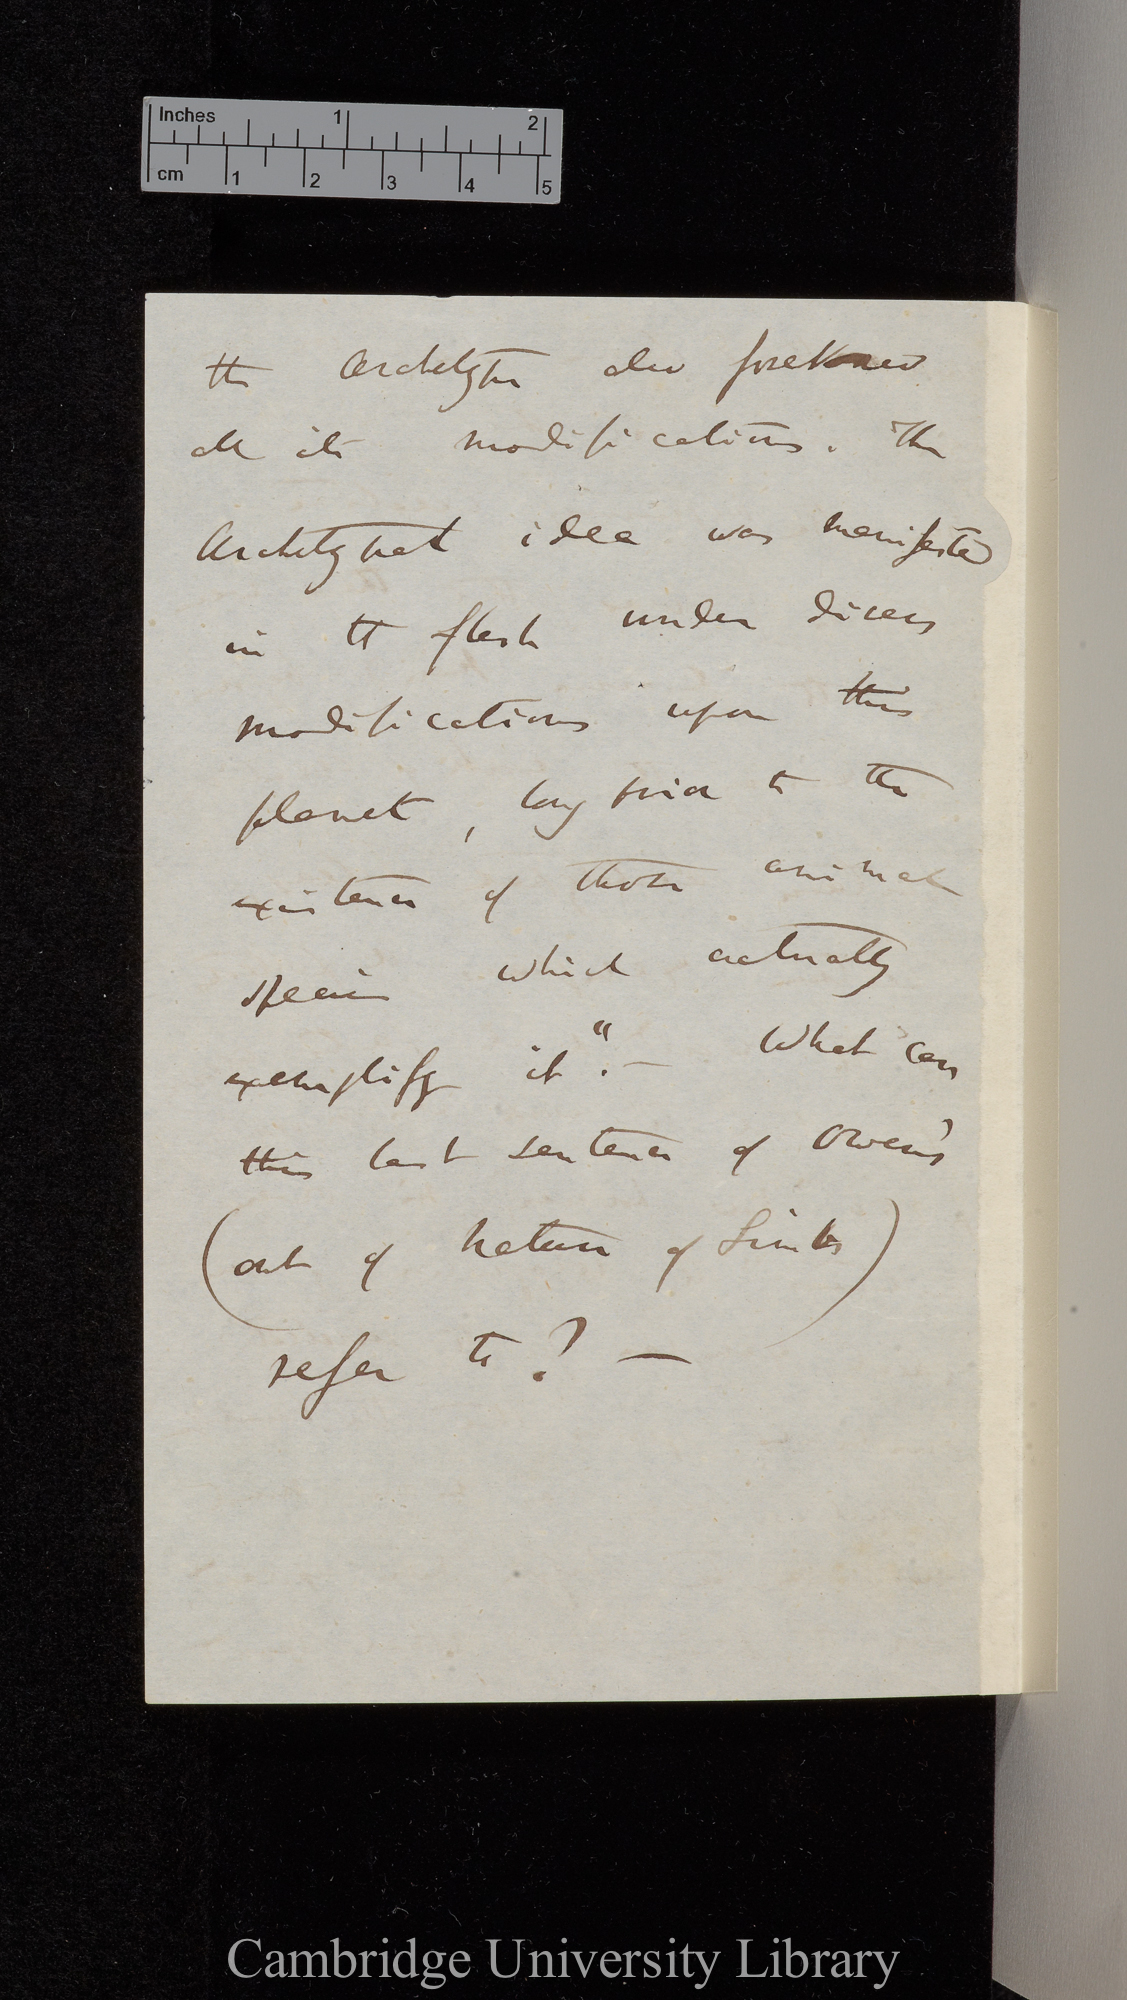 Inches 1 2
cm 1 2 3 4 5
the Archetype also foreknew
all its modifications. The
Archetypal idea was manifested
in the flesh under divers
modifications upon this
planet, long prior to the
existence of those animal
species which actually
exemplify it".— What can
this last sentence of Owen's
(out of Nature of Limbs)
refer to? —
Cambridge University Library